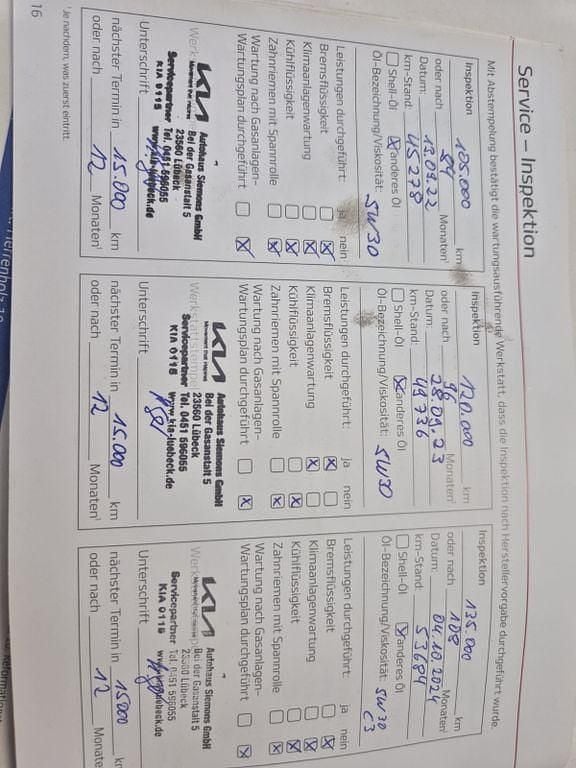 Service – Inspektion
Mit Abstempelung bestätigt die wartungsausführende Werkstatt, dass die Inspektion nach Herstellervorgabe durchgeführt wurde.
Inspektion 105.000 km
oder nach 84 Monaten¹
Datum: 13.09.22
km-Stand: 45278
☐ Shell-Öl ☒ anderes Öl
Öl-Bezeichnung/Viskosität: 5W30
Leistungen durchgeführt: ja nein
Bremsflüssigkeit ☐ ☒
Klimaanlagenwartung ☐ ☒
Kühlflüssigkeit ☐ ☒
Zahnriemen mit Spannrolle ☐ ☒
Wartung nach Gasanlagen-
Wartungsplan durchgeführt ☐ ☒
KIA
Movement that inspires
Autohaus Siemons GmbH
Bei der Gasanstalt 5
23560 Lübeck
Servicepartner Tel. 0451 596055
KIA 0118 www.kia-luebeck.de
Unterschrift
nächster Termin in 15.000 km
oder nach 12 Monaten¹
Inspektion 120.000 km
oder nach 96 Monaten¹
Datum: 28.09.23
km-Stand: 49736
☐ Shell-Öl ☒ anderes Öl
Öl-Bezeichnung/Viskosität: 5W30
Leistungen durchgeführt: ja nein
Bremsflüssigkeit ☒ ☐
Klimaanlagenwartung ☒ ☐
Kühlflüssigkeit ☐ ☒
Zahnriemen mit Spannrolle ☐ ☒
Wartung nach Gasanlagen-
Wartungsplan durchgeführt ☐ ☒
KIA
Movement that inspires
Autohaus Siemons GmbH
Bei der Gasanstalt 5
23560 Lübeck
Servicepartner Tel. 0451 596055
KIA 0118 www.kia-luebeck.de
Unterschrift
nächster Termin in 15.000 km
oder nach 12 Monaten¹
Inspektion 135.000 km
oder nach 108 Monaten¹
Datum: 04.10.2024
km-Stand: 53684
☐ Shell-Öl ☒ anderes Öl
Öl-Bezeichnung/Viskosität: 5W30 C3
Leistungen durchgeführt: ja nein
Bremsflüssigkeit ☐ ☒
Klimaanlagenwartung ☐ ☒
Kühlflüssigkeit ☐ ☒
Zahnriemen mit Spannrolle ☐ ☒
Wartung nach Gasanlagen-
Wartungsplan durchgeführt ☐ ☒
KIA
Autohaus Siemons GmbH
Bei der Gasanstalt 5
23560 Lübeck
Servicepartner Tel. 0451 596055
KIA 0118
Unterschrift
nächster Termin in 15000 km
oder nach 12 Monate
¹ Je nachdem, was zuerst eintritt.
16